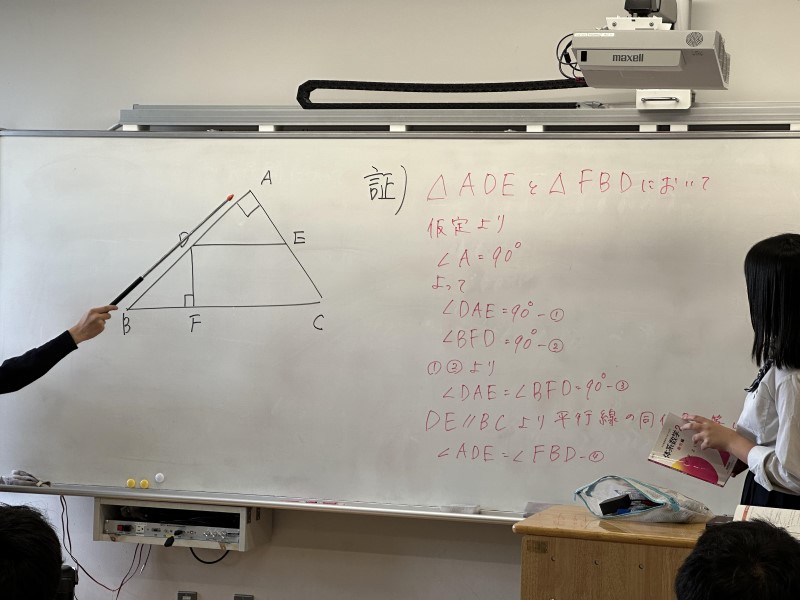 maxell
A
D
E
B
F
C
証)
△ADEと△FBDにおいて
仮定より
∠A=90°
よって
∠DAE=90°-①
∠BFD=90°-②
①②より
∠DAE=∠BFD=90°-③
DE//BCより平行線の同
∠ADE=∠FBD-④
体系数学2